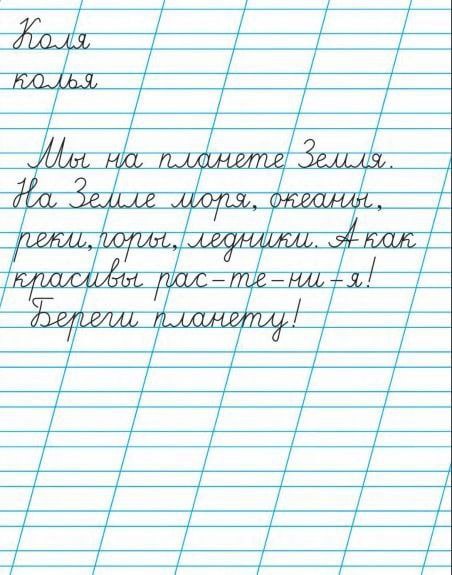 Коля
колья
Мы на планете Земля.
На Земле моря, океаны,
реки, горы, ледники. А как
красивы рас-те-ни-я!
Береги планету!